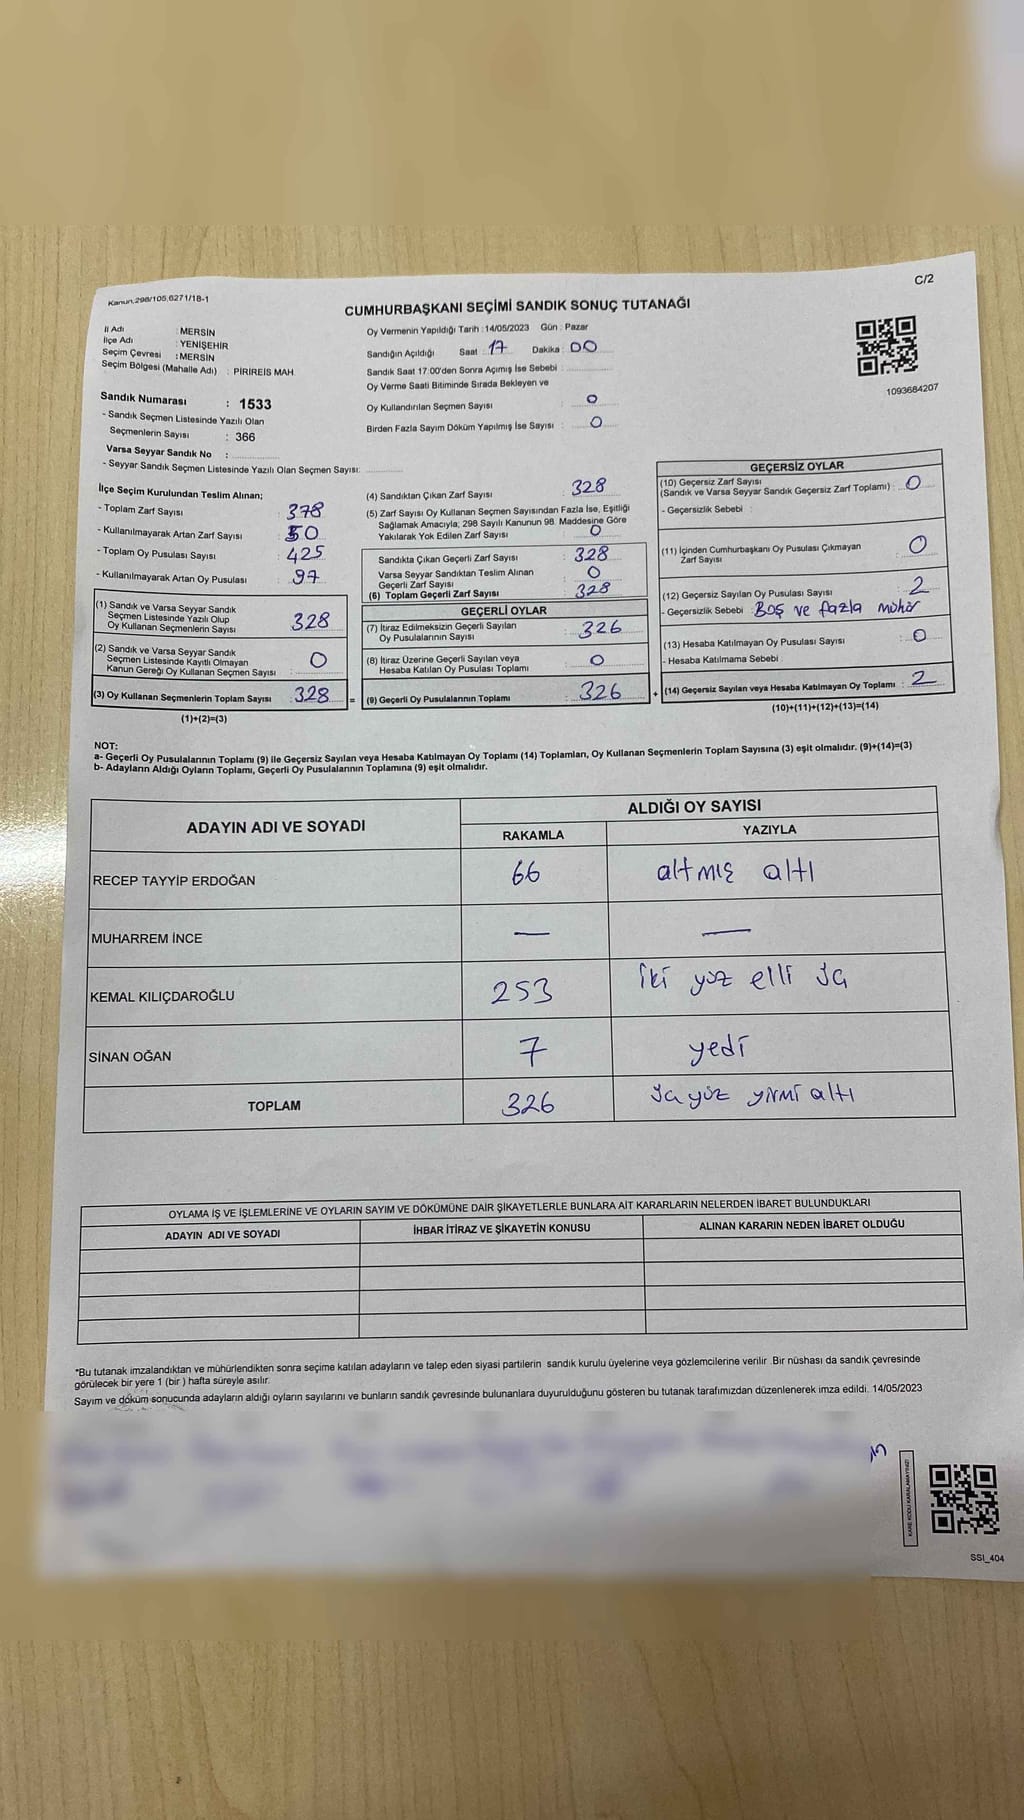 C/2
Kanun.298/105,6271/18-1
CUMHURBAŞKANI SEÇİMİ SANDIK SONUÇ TUTANAĞI
İl Adı : MERSİN
İlçe Adı : YENİŞEHİR
Seçim Çevresi : MERSİN
Seçim Bölgesi (Mahalle Adı) : PİRİREİS MAH.
Sandık Numarası : 1533
- Sandık Seçmen Listesinde Yazılı Olan
Seçmenlerin Sayısı : 366
Varsa Seyyar Sandık No :
- Seyyar Sandık Seçmen Listesinde Yazılı Olan Seçmen Sayısı:
Oy Vermenin Yapıldığı Tarih : 14/05/2023 Gün : Pazar
Sandığın Açıldığı Saat : 17 Dakika : 00
Sandık Saat 17:00'den Sonra Açımış İse Sebebi :
Oy Verme Saati Bitiminde Sırada Bekleyen ve
Oy Kullandırılan Seçmen Sayısı : 0
Birden Fazla Sayım Döküm Yapılmış İse Sayısı : 0
1093684207
İlçe Seçim Kurulundan Teslim Alınan;
- Toplam Zarf Sayısı : 378
- Kullanılmayarak Artan Zarf Sayısı : 50
- Toplam Oy Pusulası Sayısı : 425
- Kullanılmayarak Artan Oy Pusulası : 97
(1) Sandık ve Varsa Seyyar Sandık
Seçmen Listesinde Yazılı Olup
Oy Kullanan Seçmenlerin Sayısı : 328
(2) Sandık ve Varsa Seyyar Sandık
Seçmen Listesinde Kayıtlı Olmayan
Kanun Gereği Oy Kullanan Seçmen Sayısı : 0
(3) Oy Kullanan Seçmenlerin Toplam Sayısı : 328 =
(1)+(2)=(3)
(4) Sandıktan Çıkan Zarf Sayısı : 328
(5) Zarf Sayısı Oy Kullanan Seçmen Sayısından Fazla İse, Eşitliği
Sağlamak Amacıyla; 298 Sayılı Kanunun 98. Maddesine Göre
Yakılarak Yok Edilen Zarf Sayısı : 0
Sandıkta Çıkan Geçerli Zarf Sayısı : 328
Varsa Seyyar Sandıktan Teslim Alınan
Geçerli Zarf Sayısı : 0
(6) Toplam Geçerli Zarf Sayısı : 328
GEÇERLİ OYLAR
(7) İtiraz Edilmeksizin Geçerli Sayılan
Oy Pusulalarının Sayısı : 326
(8) İtiraz Üzerine Geçerli Sayılan veya
Hesaba Katılan Oy Pusulası Toplamı : 0
(9) Geçerli Oy Pusulalarının Toplamı : 326 +
GEÇERSİZ OYLAR
(10) Geçersiz Zarf Sayısı
(Sandık ve Varsa Seyyar Sandık Geçersiz Zarf Toplamı) : 0
- Geçersizlik Sebebi :
(11) İçinden Cumhurbaşkanı Oy Pusulası Çıkmayan
Zarf Sayısı : 0
(12) Geçersiz Sayılan Oy Pusulası Sayısı : 2
- Geçersizlik Sebebi : Boş ve fazla mühür
(13) Hesaba Katılmayan Oy Pusulası Sayısı : 0
- Hesaba Katılmama Sebebi :
(14) Geçersiz Sayılan veya Hesaba Katılmayan Oy Toplamı : 2
(10)+(11)+(12)+(13)=(14)
NOT:
a- Geçerli Oy Pusulalarının Toplamı (9) ile Geçersiz Sayılan veya Hesaba Katılmayan Oy Toplamı (14) Toplamları, Oy Kullanan Seçmenlerin Toplam Sayısına (3) eşit olmalıdır. (9)+(14)=(3)
b- Adayların Aldığı Oyların Toplamı, Geçerli Oy Pusulalarının Toplamına (9) eşit olmalıdır.
ADAYIN ADI VE SOYADI
ALDIĞI OY SAYISI
RAKAMLA YAZIYLA
RECEP TAYYİP ERDOĞAN 66 altmış altı
MUHARREM İNCE — —
KEMAL KILIÇDAROĞLU 253 iki yüz elli üç
SİNAN OĞAN 7 yedi
TOPLAM 326 üç yüz yirmi altı
OYLAMA İŞ VE İŞLEMLERİNE VE OYLARIN SAYIM VE DÖKÜMÜNE DAİR ŞİKAYETLERLE BUNLARA AİT KARARLARIN NELERDEN İBARET BULUNDUKLARI
ADAYIN ADI VE SOYADI İHBAR İTİRAZ VE ŞİKAYETİN KONUSU ALINAN KARARIN NEDEN İBARET OLDUĞU
*Bu tutanak imzalandıktan ve mühürlendikten sonra seçime katılan adayların ve talep eden siyasi partilerin sandık kurulu üyelerine veya gözlemcilerine verilir .Bir nüshası da sandık çevresinde
görülecek bir yere 1 (bir ) hafta süreyle asılır.
Sayım ve döküm sonucunda adayların aldığı oyların sayılarını ve bunların sandık çevresinde bulunanlara duyurulduğunu gösteren bu tutanak tarafımızdan düzenlenerek imza edildi. 14/05/2023
KARE KODU KARALAMAYINIZ!
SSİ_404